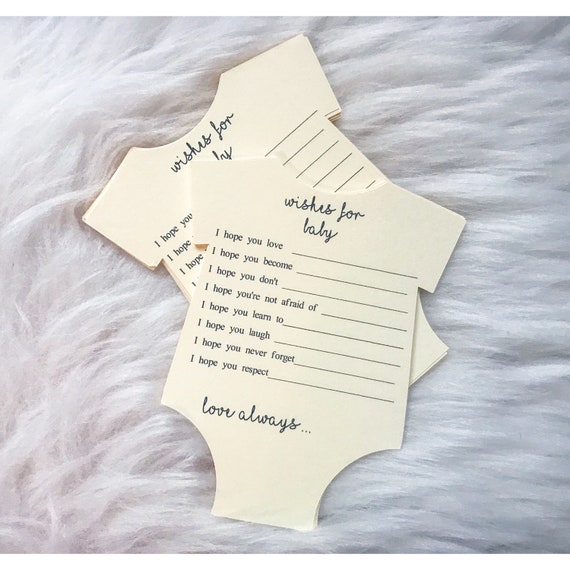 wishes for
baby
I hope you love
I hope you become
I hope you don't
I hope you're not afraid of
I hope you learn to
I hope you laugh
I hope you never forget
I hope you respect
love always...
wishes for
baby
I hope you
I hope
I hope
I hope